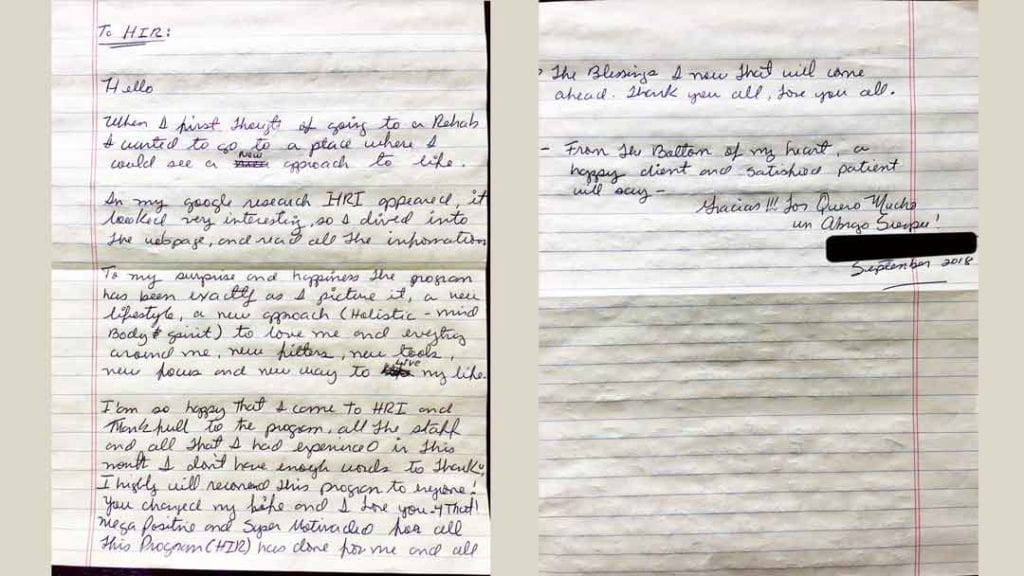 To HIR:
Hello
When I first thought of going to a Rehab
I wanted to go to a place where I
could see a new approach to life.
In my google research IHRI appeared, it
looked very interesting, so I dived into
the webpage, and read all the information
To my surprise and happiness the program
has been exactly as I picture it, a new
lifestyle, a new approach (Holistic - mind
Body & spirit) to love me and everything
around me, new filters, new tools,
new focus and new way to live my life.
I am so happy that I came to HRI and
thankfull to the program, all the staff
and all that I had experienced in this
month I don't have enough words to thank
I highly will recomend this program to
You changed my life and I love you 4 that!
Mega Positive and Super Motivaded for all
this Program (HIR) has done for me and all
The Blessings I now that will come
ahead. Thank you all, love you all.
- From the Bottom of my heart, a
happy client and satisfied patient
will say -
Gracias!!! Los Quero Mucho
un Abrazo Siempre!
September 2018